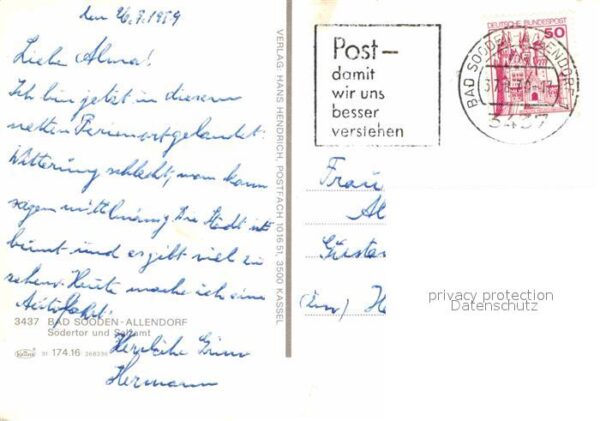 den 26.9.1979
Liebe Alma!
Ich bin jetzt in diesem
netten Ferienort gelandet.
Witterung schlecht, man kann
sagen mittelmäßig. Die Stadt ist
bunt und es gibt viel zu
sehen. Heute mache ich eine
Autofahrt.
3437 BAD SOODEN-ALLENDORF
Södertor und Salzamt
51 174.16
Herzliche Grüße
Hermann
VERLAG HANS HENDRICH, POSTFACH 101651, 3500 KASSEL
Post-
damit
wir uns
besser
verstehen
DEUTSCHE BUNDESPOST
50
BAD SOODEN-ALLENDORF
3437
Frau
Al
Gustav
He
privacy protection
Datenschutz